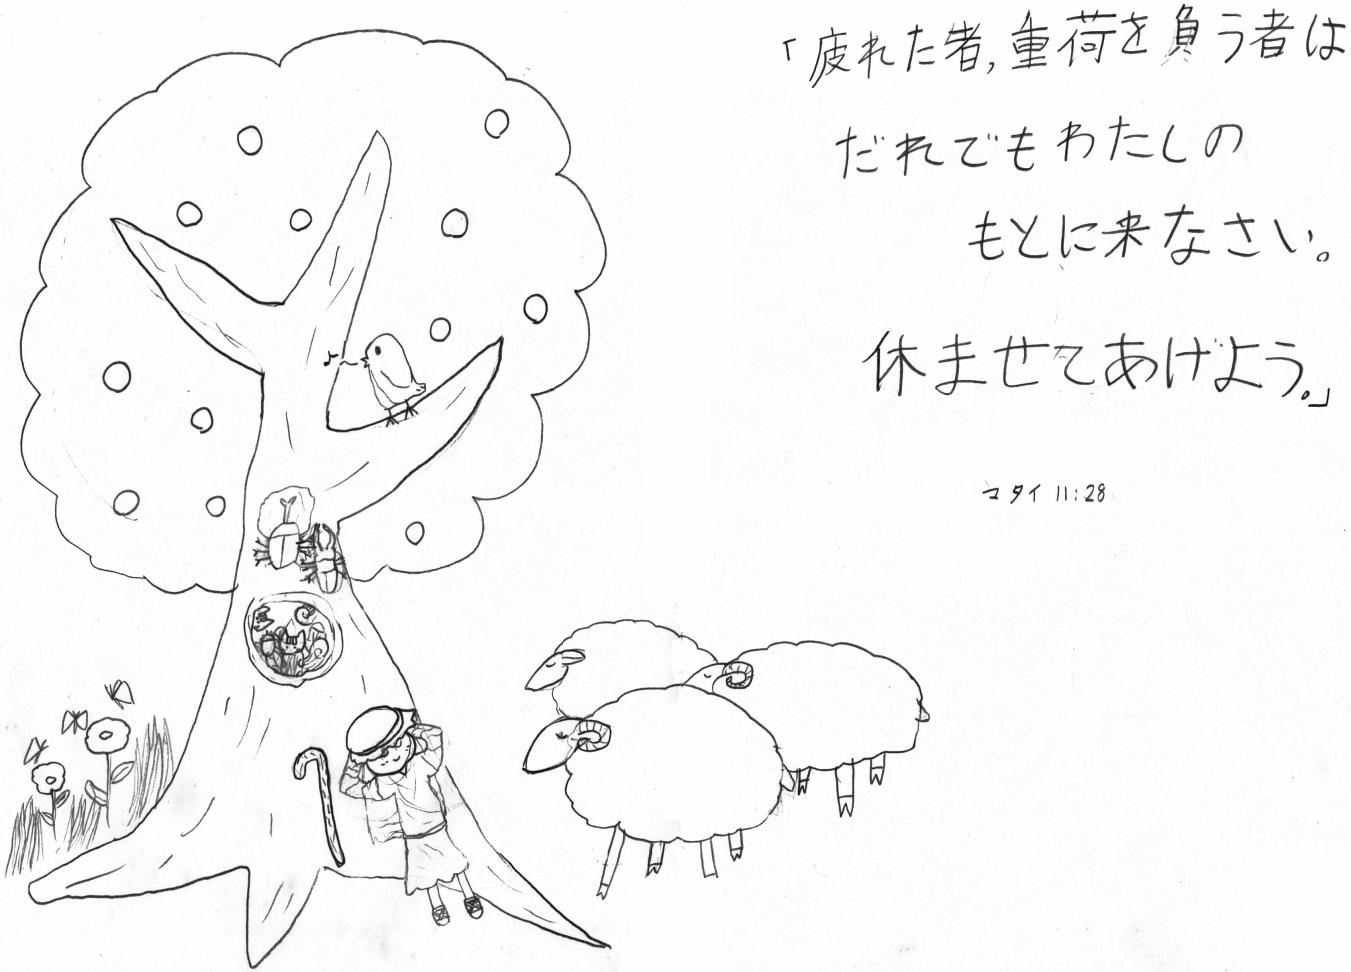 「疲れた者,重荷を負う者は
だれでもわたしの
もとに来なさい。
休ませてあげよう。」
マタイ 11:28